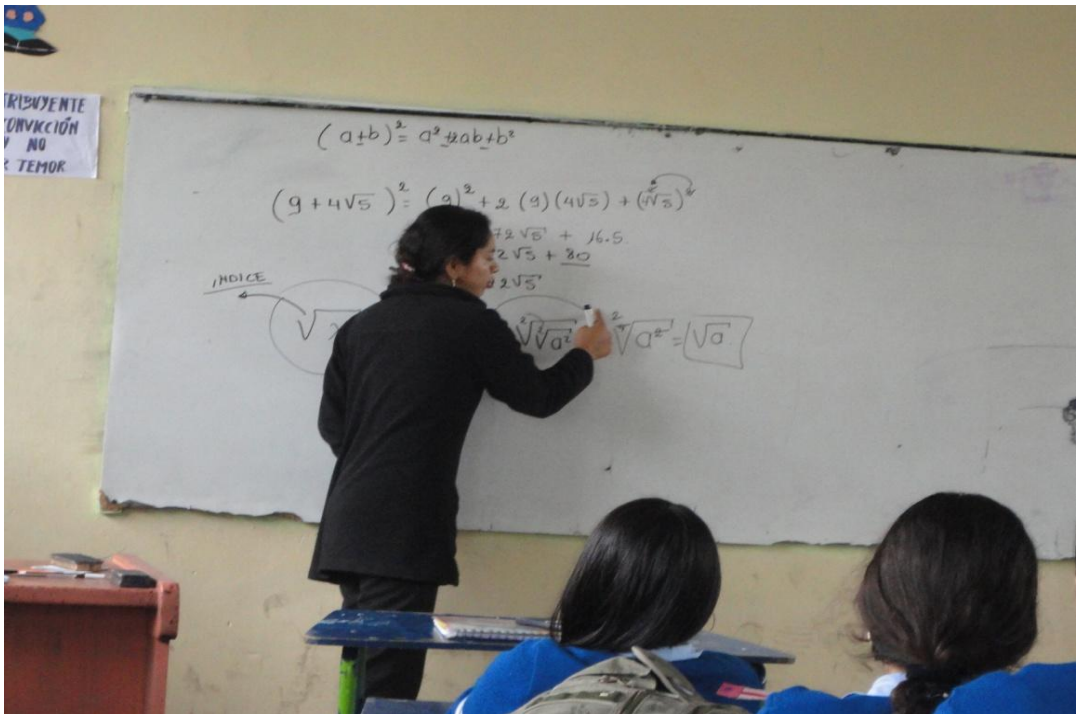 TRIBUYENTE
CONVICCIÓN
Y NO
TEMOR
(a±b)² = a² ± 2ab + b²
(9 + 4√5)² = (9)² + 2 (9)(4√5) + (4√5)²
72√5 + 16.5
2√5 + 80
2√5
INDICE
√
²√²√a² ²√a² = √a